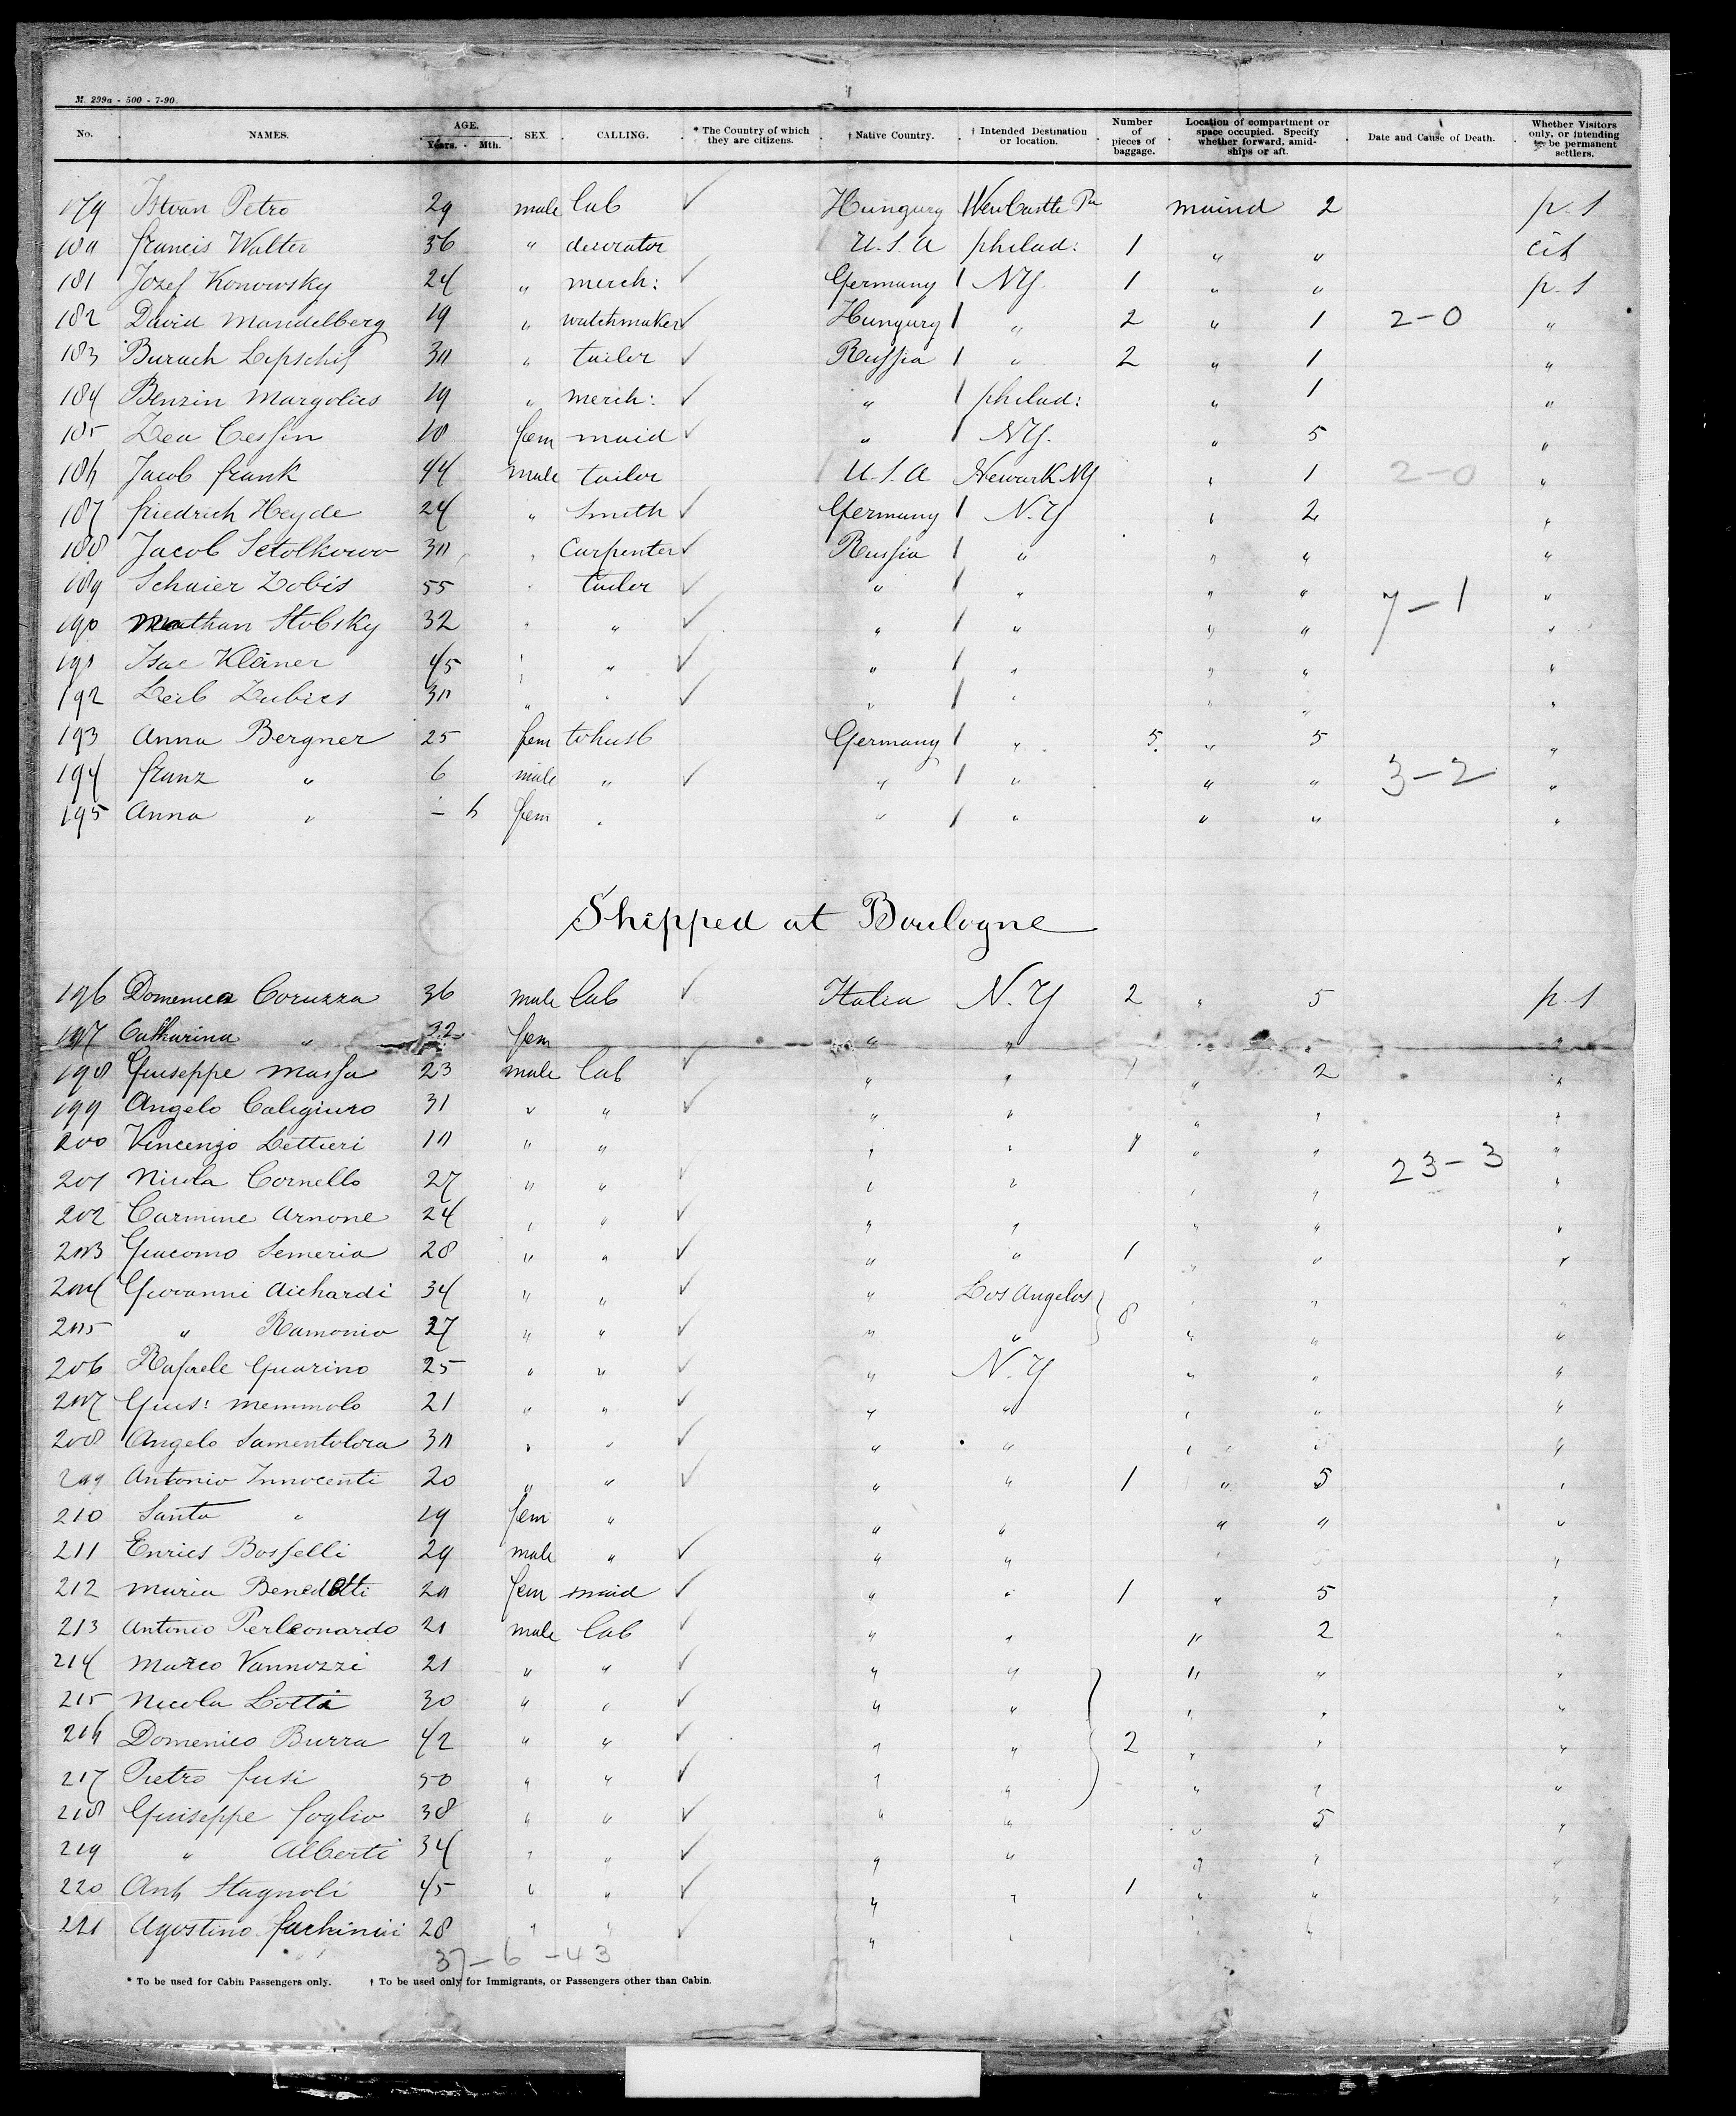 M. 299a - 500 - 7-90.
No. NAMES. AGE. Years. Mth. SEX. CALLING. * The Country of which they are citizens. † Native Country. † Intended Destination or location. Number of pieces of baggage. Location of compartment or space occupied. Specify whether forward, amidships or aft. Date and Cause of Death. Whether Visitors only, or intending to be permanent settlers.
179 Istvan Petro 29 male lab ✓ Hungary NewCastle Pa maind 2 p. s
180 francis Walter 36 " decorator U.S.A philad: 1 " " cit
181 Jozef Konowsky 24 " merch: ✓ Germany NY. 1 " " p. s
182 David Mandelberg 19 " watchmaker ✓ Hungary " 2 " 1 2-0 "
183 Burach Lipschitz 30 " tailor ✓ Russia " 2 " 1 "
184 Benzin Margolies 19 " merch: ✓ " philad: " 1 "
185 Lea Cessin 18 fem maid ✓ " NY. " 5 "
186 Jacob frank 44 male tailor U.S.A Newark NY " 1 2-0 "
187 friedrich Heyde 24 " Smith ✓ Germany N.Y " 2 "
188 Jacob Setolkowo 30 " Carpenter ✓ Russia " " " "
189 Schaier Lobis 55 " tailor ✓ " " " " "
190 Nathan Stobsky 32 " " ✓ " " " " 7-1 "
191 Isac Kleiner 45 " " ✓ " " " " "
192 Leib Lubies 30 " " ✓ " " " " "
193 Anna Bergner 25 fem tohusb Germany " 5. " 5 "
194 franz " 6 male " ✓ " " " " 3-2 "
195 Anna " - 6 fem " " " " " "
Shipped at Boulogne
196 Domenico Coruzza 36 male lab ✓ Italia N.Y 2 " 5 p. s
197 Catharina " 32 fem " " " "
198 Giuseppe Massa 23 male lab ✓ " " 1 " 2 "
199 Angelo Caligiuro 31 " " ✓ " " " " "
200 Vincenzo Lettieri 10 " " " " 1 " " "
201 Nicola Cornello 27 " " ✓ " " " " 23-3 "
202 Carmine Arnone 24 " " ✓ " " " " "
203 Giacomo Semeria 28 " " ✓ " " 1 " " "
204 Giovanni Aichardi 34 " " ✓ " Los Angelos } 8 " " "
205 " Ramonio 27 " " ✓ " " " " "
206 Rafaele Guarino 25 " " ✓ " N.Y " " "
207 Gius: Memmolo 21 " " ✓ " " " " "
208 Angelo Samentolora 30 " " ✓ " " " "
209 Antonio Innocenti 20 " " ✓ " " 1 " 5 "
210 Santa " 19 fem " " " " " "
211 Enrico Bosselli 29 male " ✓ " " "
212 Maria Benedetti 20 fem maid ✓ " " 1 " 5 "
213 Antonio Perleonardo 21 male lab ✓ " " " 2 "
214 Marco Vannozzi 21 " " ✓ " " " " "
215 Nicola Lotti 30 " " ✓ " " " " "
216 Domenico Burra 42 " " ✓ " " } 2 " " "
217 Pietro fusi 50 " " ✓ " " " " "
218 Giuseppe foglio 38 " " ✓ " " " 5 "
219 " Alberti 34 " " ✓ " " " " "
220 Ant Stagnoli 45 " " ✓ " " 1 " " "
221 Agostino fachinini 28 " " ✓ " " " "
37-6-43
* To be used for Cabin Passengers only. † To be used only for Immigrants, or Passengers other than Cabin.